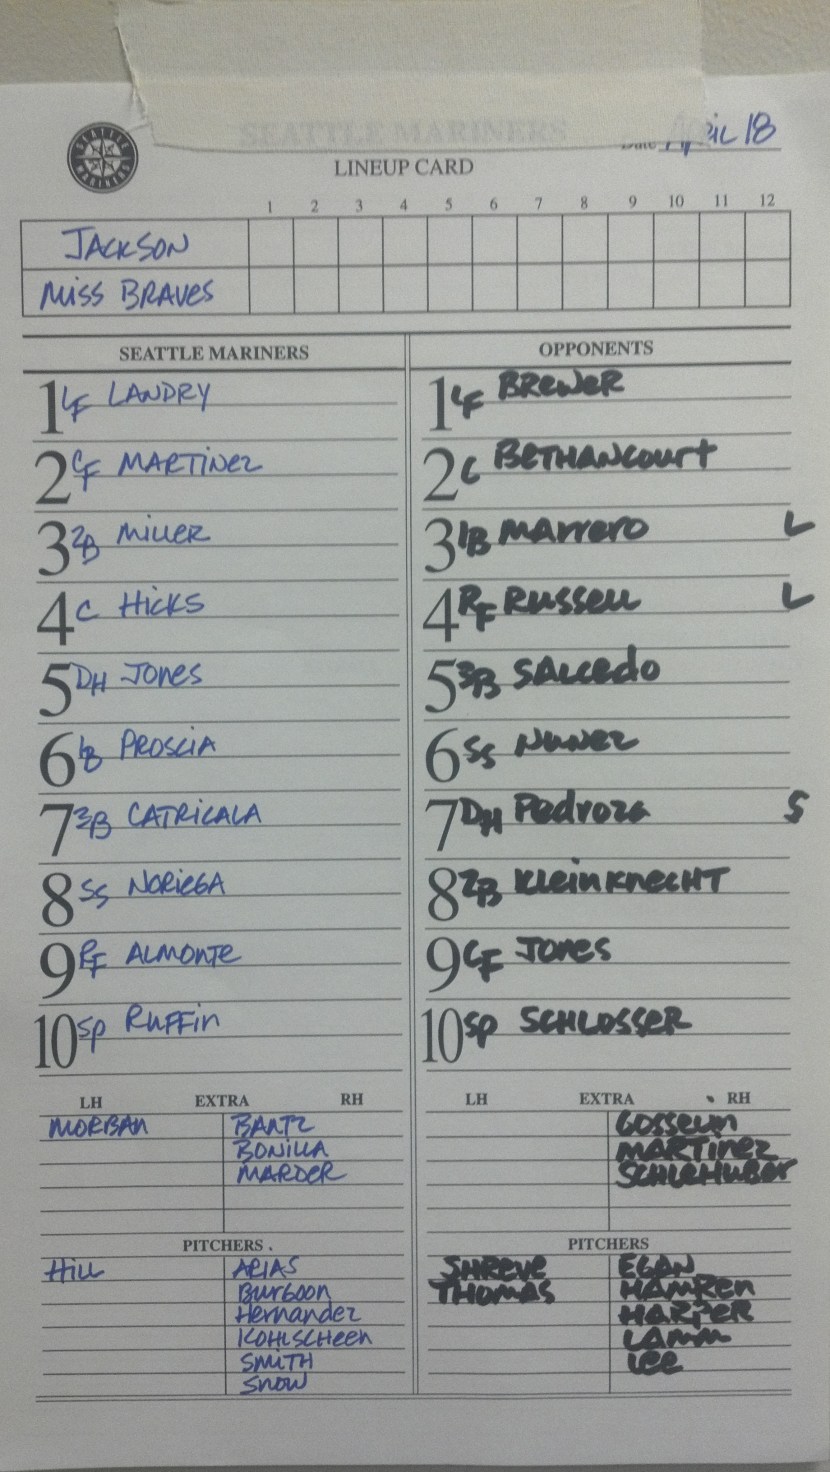 SEATTLE MARINERS
Date April 18
SEATTLE MARINERS
LINEUP CARD
1 2 3 4 5 6 7 8 9 10 11 12
JACKSON
MISS BRAVES
SEATTLE MARINERS OPPONENTS
1 LF LANDRY 1 LF BREWER
2 CF MARTINEZ 2 C BETHANCOURT
3 2B MILLER 3 1B MARRERO L
4 C HICKS 4 RF RUSSELL L
5 DH JONES 5 3B SALCEDO
6 1B PROSCIA 6 SS NUNEZ
7 3B CATRICALA 7 DH Pedroza S
8 SS NORIEGA 8 2B KLEINKNECHT
9 RF ALMONTE 9 CF JONES
10 SP RUFFIN 10 SP SCHLOSSER
LH EXTRA RH LH EXTRA RH
MORBAN BANTZ GOSSELIN
BONILLA MARTINEZ
MARDER SCHLEHUBER
PITCHERS PITCHERS
Hill ARIAS SHREVE EGAN
Burgoon THOMAS HAMREN
Hernandez HARPER
KOHLSCHEEN LAMM
SMITH LEE
SNOW